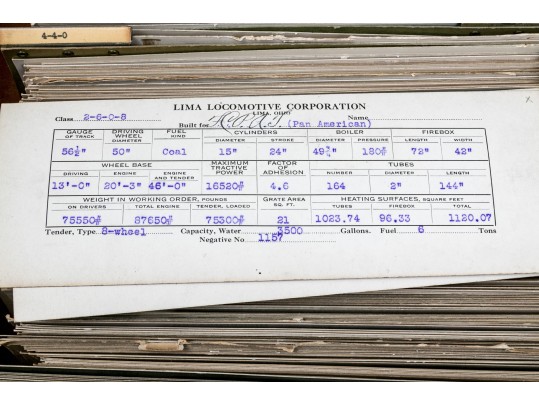 4-4-0
LIMA LOCOMOTIVE CORPORATION
LIMA, OHIO
Class 2-6-0-8 Name
Built for (Pan American)
GAUGE OF TRACK DRIVING WHEEL DIAMETER FUEL KIND CYLINDERS BOILER FIREBOX
DIAMETER STROKE DIAMETER PRESSURE LENGTH WIDTH
56½" 50" Coal 15" 24" 49¾" 180# 72" 42"
WHEEL BASE MAXIMUM TRACTIVE POWER FACTOR OF ADHESION TUBES
DRIVING ENGINE ENGINE AND TENDER NUMBER DIAMETER LENGTH
13'-0" 20'-3" 46'-0" 16520# 4.6 164 2" 144"
WEIGHT IN WORKING ORDER, POUNDS GRATE AREA SQ. FT. HEATING SURFACES, SQUARE FEET
ON DRIVERS TOTAL ENGINE TENDER, LOADED TUBES FIREBOX TOTAL
75550# 87650# 75300# 21 1023.74 96.33 1120.07
Tender, Type 8-wheel Capacity, Water 3500 Gallons. Fuel 6 Tons
Negative No 1157